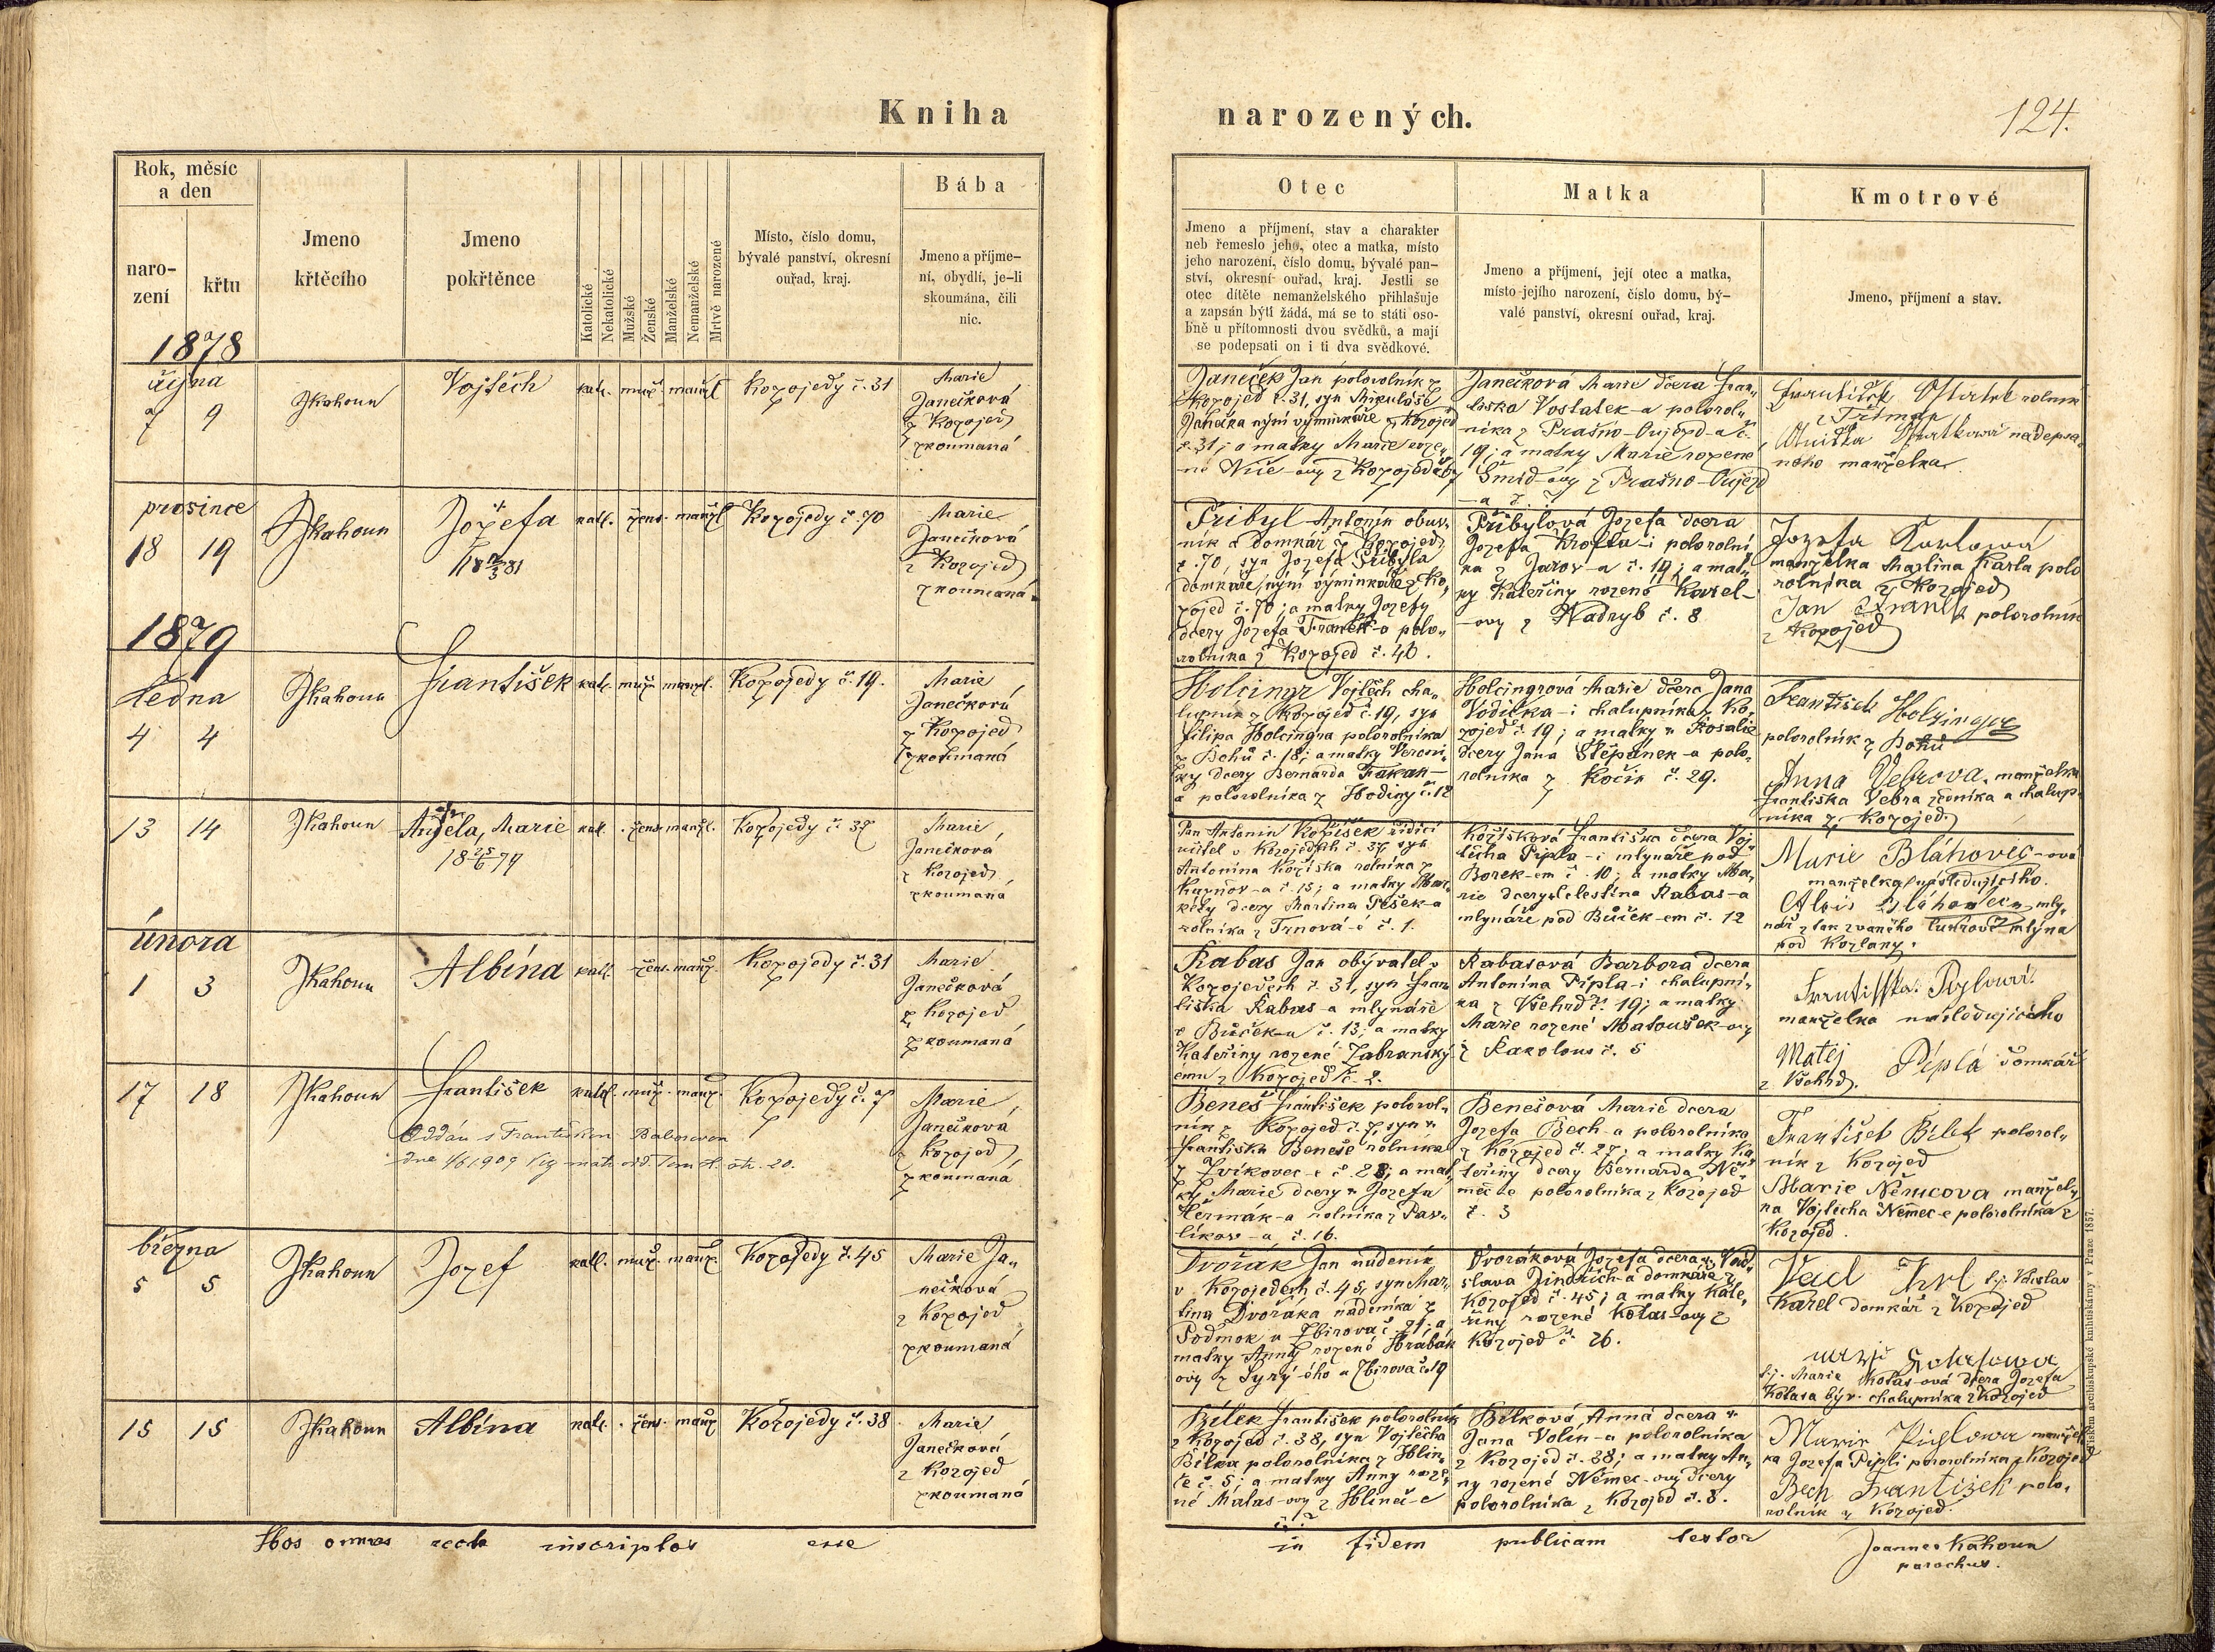 Kniha
narozených.
124.
Rok, měsíc
a den
naro-
zení
křtu
Jmeno
křtěcího
Jmeno
pokřtěnce
Katolické
Nekatolické
Mužské
Ženské
Manželské
Nemanželské
Mrtvě narozené
Místo, číslo domu,
bývalé panství, okresní
ouřad, kraj.
Bába
Jmeno a příjme-
ní, obydlí, je-li
skoumána, čili
nic.
Otec
Jmeno a příjmení, stav a charakter
neb řemeslo jeho, otec a matka, místo
jeho narození, číslo domu, bývalé pan-
ství, okresní ouřad, kraj. Jestli se
otec dítěte nemanželského přihlašuje
a zapsán býti žádá, má se to státi oso-
bně u přítomnosti dvou svědků, a mají
se podepsati on i ti dva svědkové.
Matka
Jmeno a příjmení, její otec a matka,
místo jejího narození, číslo domu, bý-
valé panství, okresní ouřad, kraj.
Kmotrové
Jmeno, příjmení a stav.
1878
října
7 9
JKahoun
Vojtěch
kat. muž. manžl
Kozojedy č. 31
Marie
Janečková
z Kozojed
zkoumaná
Janeček Jan polorolník z
Kozojed č. 31, syn Mikuláše
Janečka nyní výminkáře z Kozojed
č. 31; a matky Marie roze„
né
Janečková Marie dcera Fran„
tiska Vostatek-a polorol„
níka z Prašno-Oujezd-a č.
19; a matky Marie rozené
Šmíd-ovy z Prašno-Oujezd
-a č. 7
František Ostatek rolník
z Tříman
manželka
prosince
18 19
JKahoun
Jozefa
kat. žens. manžl
Kozojedy č. 70
Marie
Janečková
z Kozojed
zkoumaná
Přibyl Antonín obuv„
ník a domkář z Kozojed
č. 70, syn Jozefa Přibyla
domkáře, nyní výminkáře z Ko„
zojed č. 70; a matky Jozefy
dcery Jozefa Franěk-a polo„
rolníka z Kozojed č. 40.
Přibylová Jozefa dcera
Jozefa Krofta-i polorolní
ka z Jarov-a č. 19; a mat„
ky Kateřiny rozené Karel-
-ovy z Nadryb č. 8
Jozefa Karlowá
manželka Martina Karla polo
rolníka z Kozojed
Jan Franěk polorolník
z Kozojed
1879
ledna
4 4
JKahoun
František
kat. muž. manžl.
Kozojedy č. 19.
Marie
Janečková
z Kozojed
zkoumaná
Holcingr Vojtěch cha„
lupník z Kozojed č. 19, syn
Filipa Holcingra polorolníka
z Bohů č. 18; a matky Veroni„
ky dcery Bernarda
a polorolníka z Hodiny č. 12
Holcingrová Marie dcera Jana
Vodička-i chalupníka z Ko„
zojed č. 19; a matky Rosalie
dcery Jana Štěpánek-a polo„
rolníka z Kočín č. 29.
František Holzinger
polorolník z Bohů
Anna Vebrova, manželka
Františka Vebra zedníka a chalup„
níka z Kozojed
13 14
JKahoun
Anjela, Marie
kat. žens. manžl.
Kozojedy č 37
Marie
Janečková
z Kozojed
zkoumaná
Pan Antonín Kožíšek řídící
učitel v Kozojedech č. 37, syn
Antonína Kožíška rolníka z
Kaznov-a č. 15; a matky Mar„
kéty dcery Martina Pešek-a
rolníka z Trnová-é č. 1.
Kožíšková Františka dcera Voj„
těcha Pipla-i mlynáře pod
Borek-em č. 10; a matky Ma„
rie dcery Celestina Rabas-a
mlynáře pod Bůček-em č. 12
Marie Bláhovec-ová
manželka následujícího.
Alois Bláhovec, mly„
nář z tak zvaného mlýna
pod Kozlany.
února
1 3
JKahoun
Albína
kat. žens. manž.
Kozojedy č. 31
Marie
Janečková
z Kozojed
zkoumaná
Rabas Jan obývatel v
Kozojedech č. 31, syn Fran
tiška Rabas-a mlynáře
z Bůček-u č. 13; a matky
Kateřiny rozené Zabranský
z Kozojed č. 2.
Rabasová Barbora dcera
Antonína Pipla-i chalupní„
ka z Všehrd č. 19; a matky
Marie rozené Matoušek-ovy
z Rakolous č. 5
manželka následujícího
Matěj Pipla domkář
z Všehrd.
17 18
JKahoun
František
katol. muž. manž.
Kozojedy č. 7
Oddán s Františkou Rabasovou
Marie
Janečková
z Kozojed
zkoumaná
Beneš František polorol„
ník z Kozojed č. 7, syn
Františka Beneše rolníka
z Zvíkovec-e č. 28; a mat„
ky Marie dcery Jozefa
Heřmák-a rolníka z Pav„
líkov-a č. 16.
Benešová Marie dcera
Jozefa Bech-a polorolníka
z Kozojed č. 27; a matky Ka
teřiny dcery Bernarda Ně„
mec-e polorolníka z Kozojed
č. 3
František Bílek polorol„
ník z Kozojed
Marie Němcova manžel„
ka Vojtěcha Němec-e polorolníka z
Kozojed.
března
5 5
JKahoun
Jozef
kat. muž. manž.
Kozojedy č. 45
Marie Ja„
nečková
z Kozojed
zkoumaná
Dvořák Jan nádeník
v Kozojedech č. 45, syn Mar„
tina Dvořáka nádeníka z
Podmok u Zbirova č. 21; a
matky Anny rozené Hrabák
ovy z Syrý-ého u Zbirova č. 19
Dvořáková Jozefa dcera
slava Jindřich-a domkáře z
Kozojed č. 45; a matky Kate„
řiny rozené Kolas-ovy z
Kozojed č. 26.
Karel domkář z Kozojed
t.j. Marie Kolas-ová dcera Jozefa
Kolasa býv. chalupníka z Kozojed
15 15
JKahoun
Albína
kat. žens. manž
Kozojedy č. 38
Marie
Janečková
z Kozojed
zkoumaná
Bílek František polorolník
z Kozojed č. 38, syn Vojtěcha
Bílka polorolníka z Hlin„
če č. 5; a matky Anny roze„
né Malas-ovy z Hlineč-e
č. 2
Bílková Anna dcera
Jana Volín-a polorolníka
z Kozojed č. 28; a matky An„
ny rozené Němec-ovy dcery
polorolníka z Kozojed č. 8.
Marie Piplowa manžel
ka Jozefa Pipli polorolníka z Kozojed
Bech František polo„
rolník z Kozojed.
Hos omnes recte inscriptos esse
in fidem publicam testor
Joannes Kahoun
parochus.
Tiskem arcibiskupské knihtiskárny v Praze 1857.